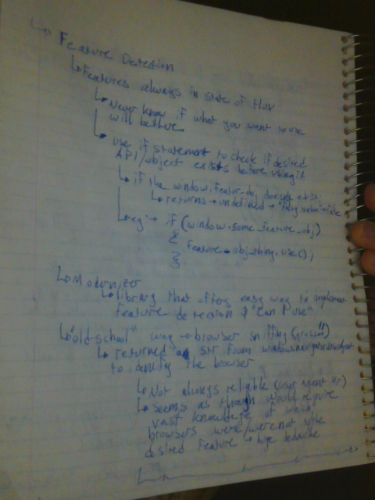 ↳ Feature Detection
↳ Features always in state of flux
↳ Never know if what you want to use
will be there
↳ use if statement to check if desired
API/object exists before using it
↳ if the window.feature_obj doesn't exist
↳ returns undefined →
↳ eg → if (window.some_feature_obj)
{
feature_obj.thing.use();
}
↳ Modernizer
↳ library that offers easy way to implement
feature detection & "can I use"
↳ "old-school" way → browser sniffing
↳ returned as str from window.navigator.userAgent
to identify the browser
↳ Not always reliable
↳ seems as though it would require
vast knowledge of which
browsers were/were not
desired feature → huge headache